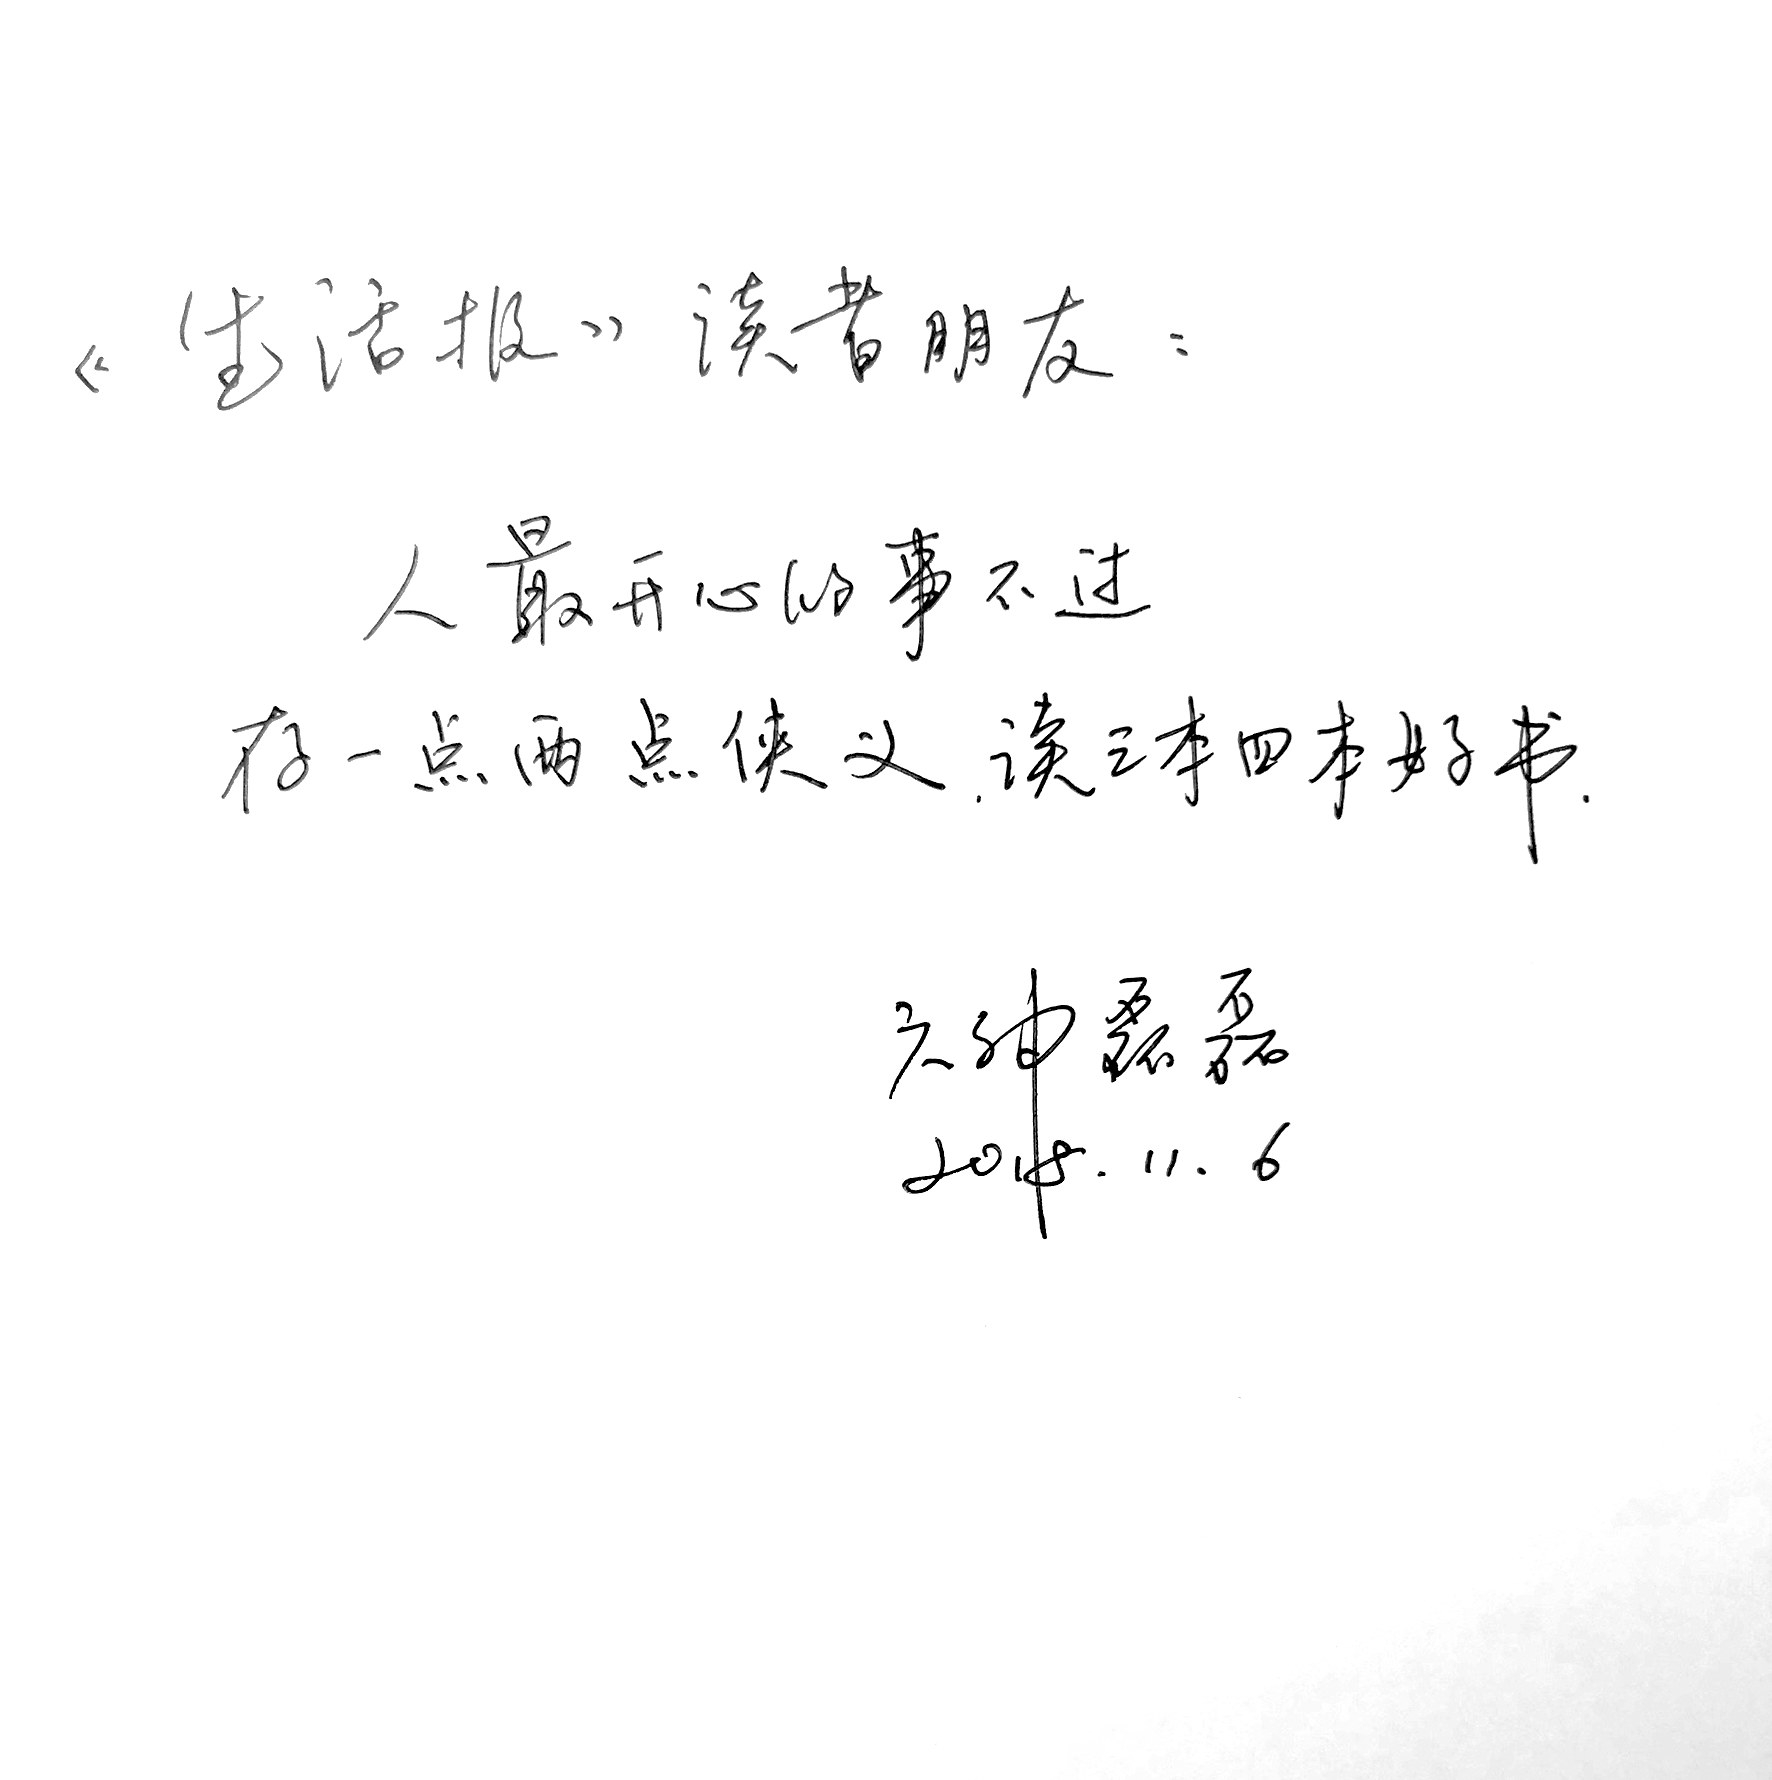 《生活报》读者朋友：
人最开心的事不过
存一点两点侠义.读三本四本好书.
六神磊磊
2015.11.6